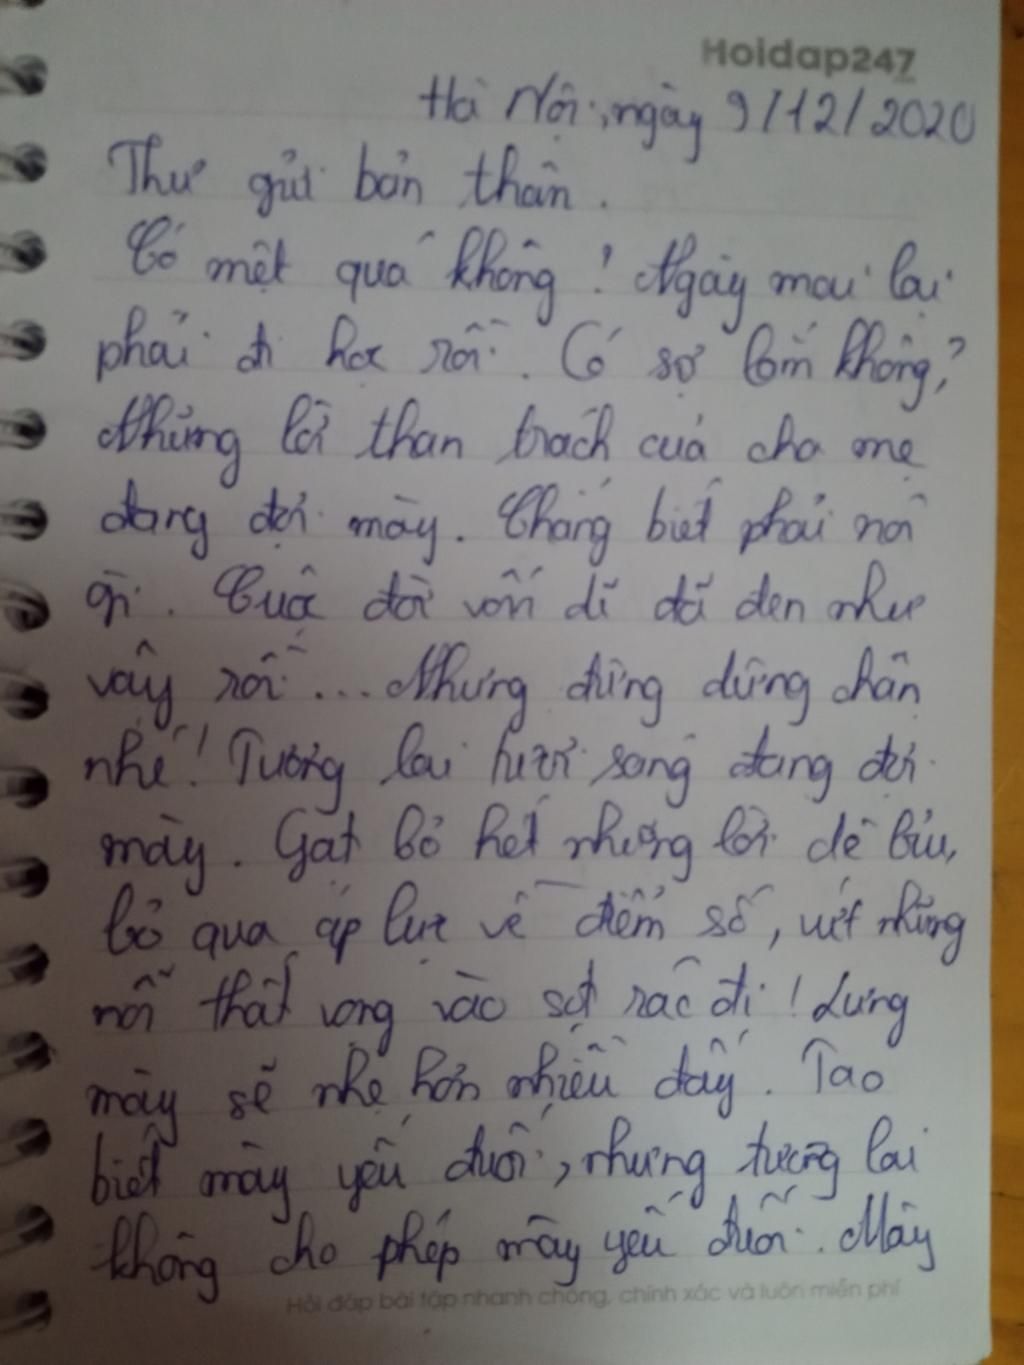 Hoidap247
Hà Nội, ngày 9/12/2020
Thư gửi bản thân.
Có mệt quá không! Ngày mai lại
phải đi học rồi. Có sợ lắm không?
Những lời than trách của cha mẹ
đang đợi mày. Chẳng biết phải nói
gì. Cuộc đời vốn dĩ đã đen như
vậy rồi... Nhưng đừng dừng chân
nhé! Tương lai tươi sáng đang đợi
mày. Gạt bỏ hết những lời dè bỉu,
bỏ qua áp lực về điểm số, vứt những
nỗi thất vọng vào sọt rác đi! Lưng
mày sẽ nhẹ hơn nhiều đấy. Tao
biết mày yếu đuối, nhưng tương lai
không cho phép mày yếu đuối. Mày
Hỏi đáp bài tập nhanh chóng, chính xác và luôn miễn phí